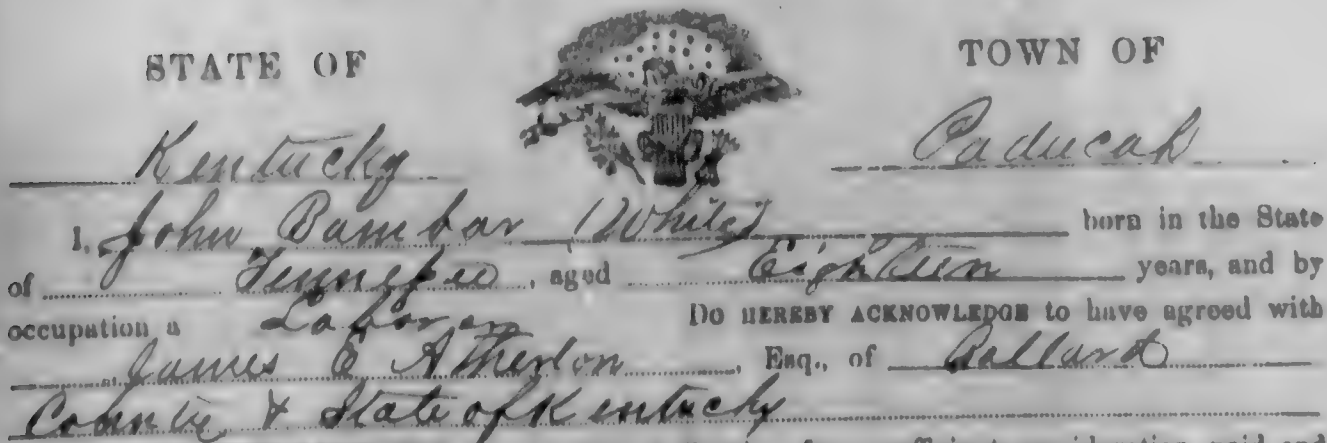 STATE OF
TOWN OF
Kentucky
Paducah
I, John Bambar (White) born in the State
of Tennessee, aged Eighteen years, and by
occupation a Laborer Do HEREBY ACKNOWLEDGE to have agreed with
James E Atherton, Esq., of Ballard
County & State of Kentucky